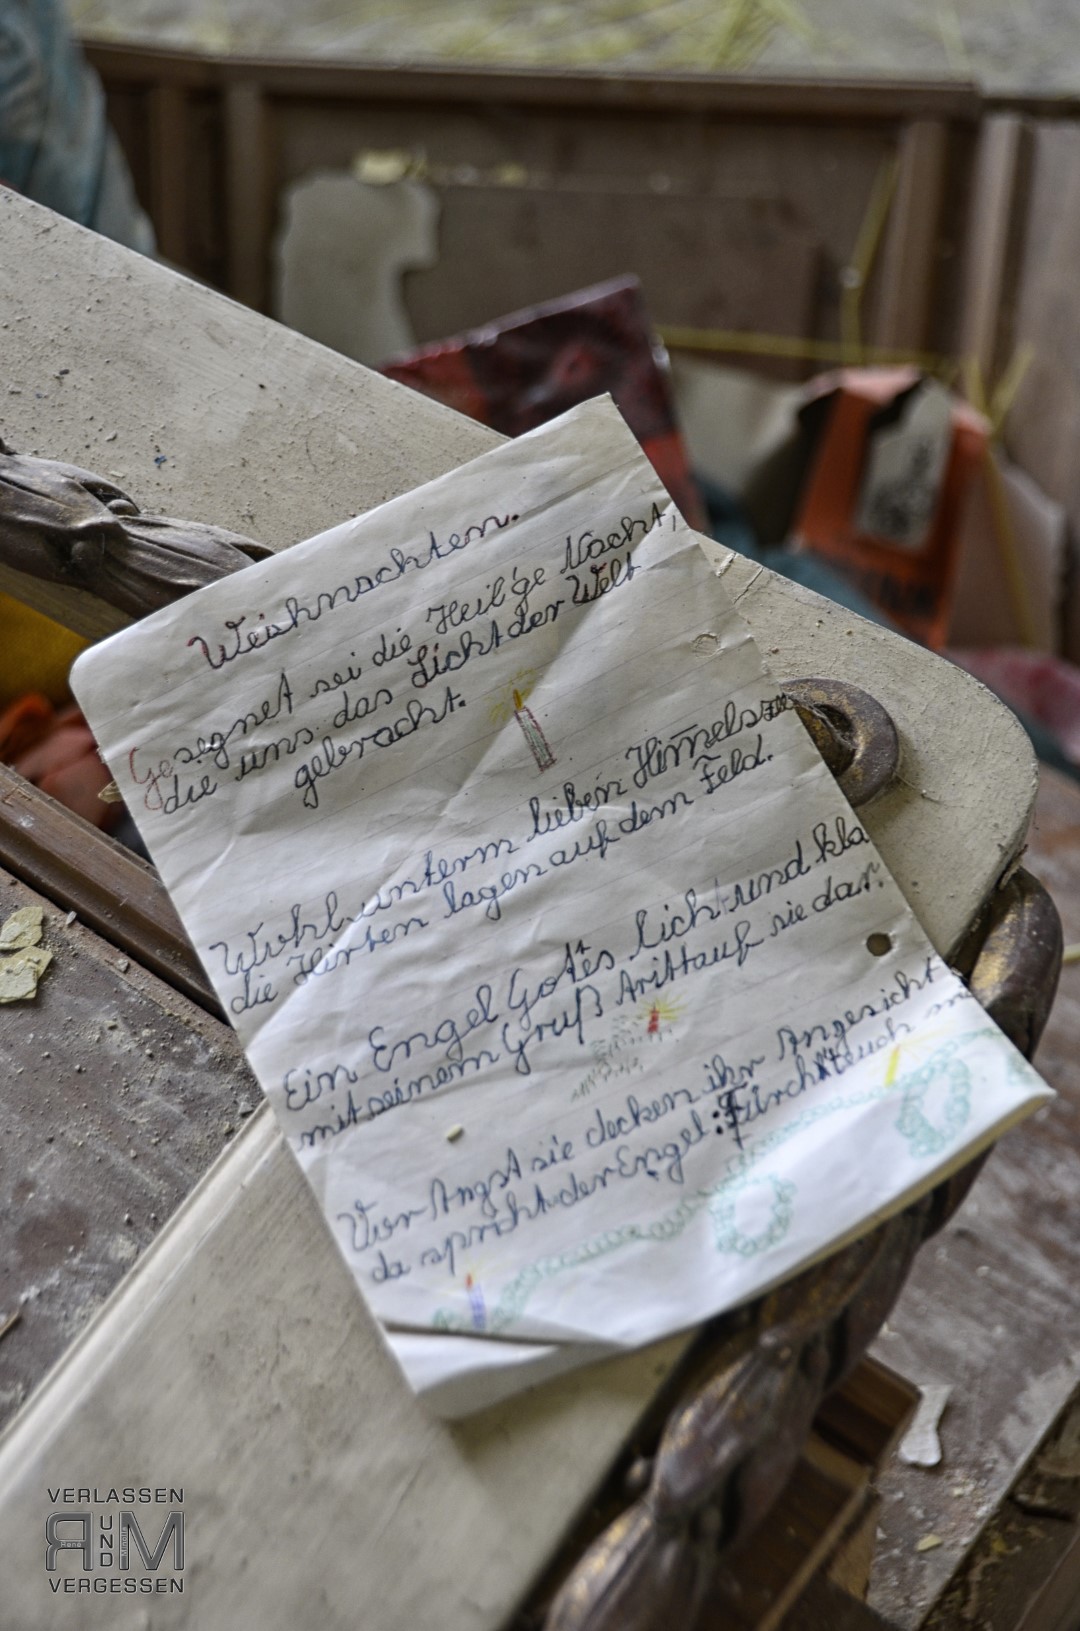 Weihnachten.
Gesegnet sei die Heil'ge Nacht,
die uns das Licht der Welt
gebracht.
Wohl unterm lieben Himelszelt
die Hirten lagen auf dem Feld.
Ein Engel Gottes licht und kla
mit seinem Gruß tritt auf sie dar.
Vor Angst sie decken ihr Angesicht
da spricht der Engel: Fürchtet euch
VERLASSEN
R UND M
VERGESSEN